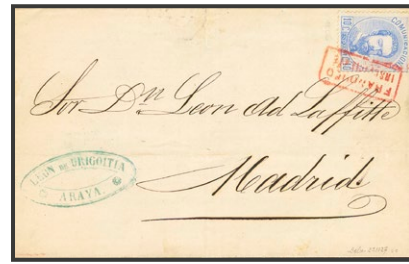 COMUNICACIONES
FRANQUEO
Sor. Dn. Leon Ad Laffitte
LEON DE BRIGOITIA
ARAYA.
Madrid